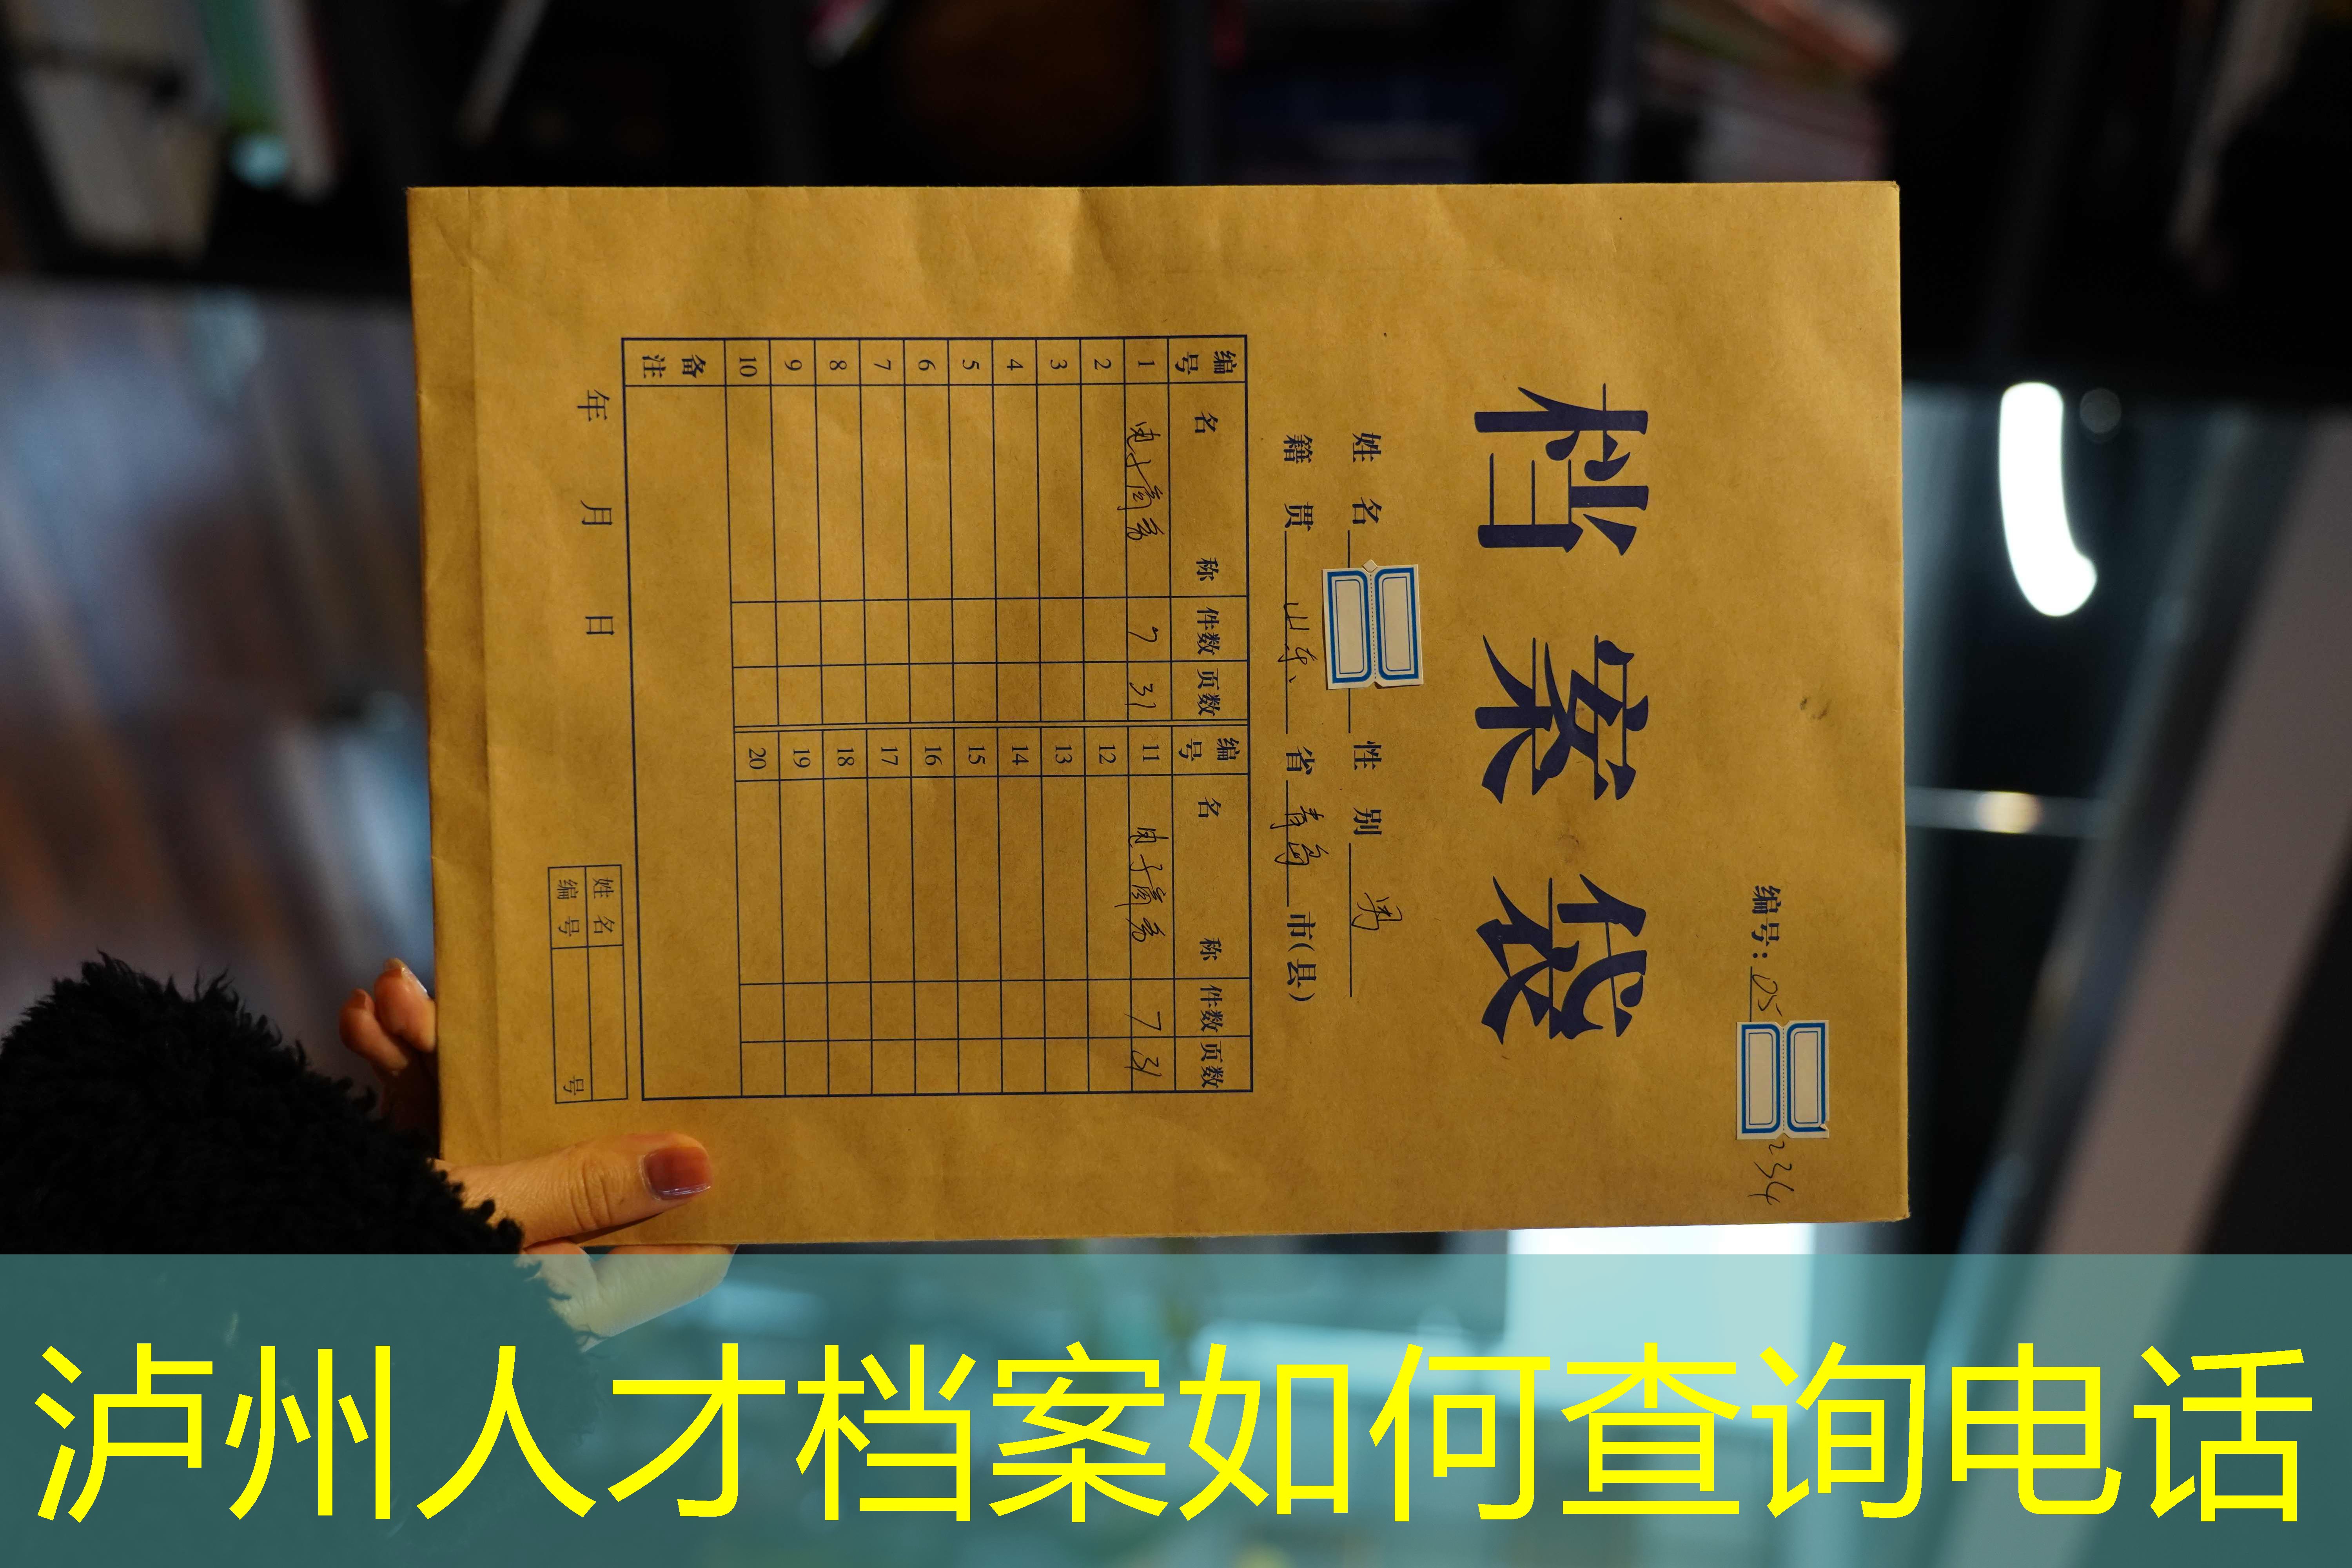 编号：05 234
档案袋
姓名 性别 男
籍贯 山东 省 青岛 市(县)
编号 名称 件数 页数 编号 名称 件数 页数
1 电子商务 7 31 11 电子商务 7 31
2 12
3 13
4 14
5 15
6 16
7 17
8 18
9 19
10 20
备注
年 月 日
姓名
编号 号
泸州人才档案如何查询电话